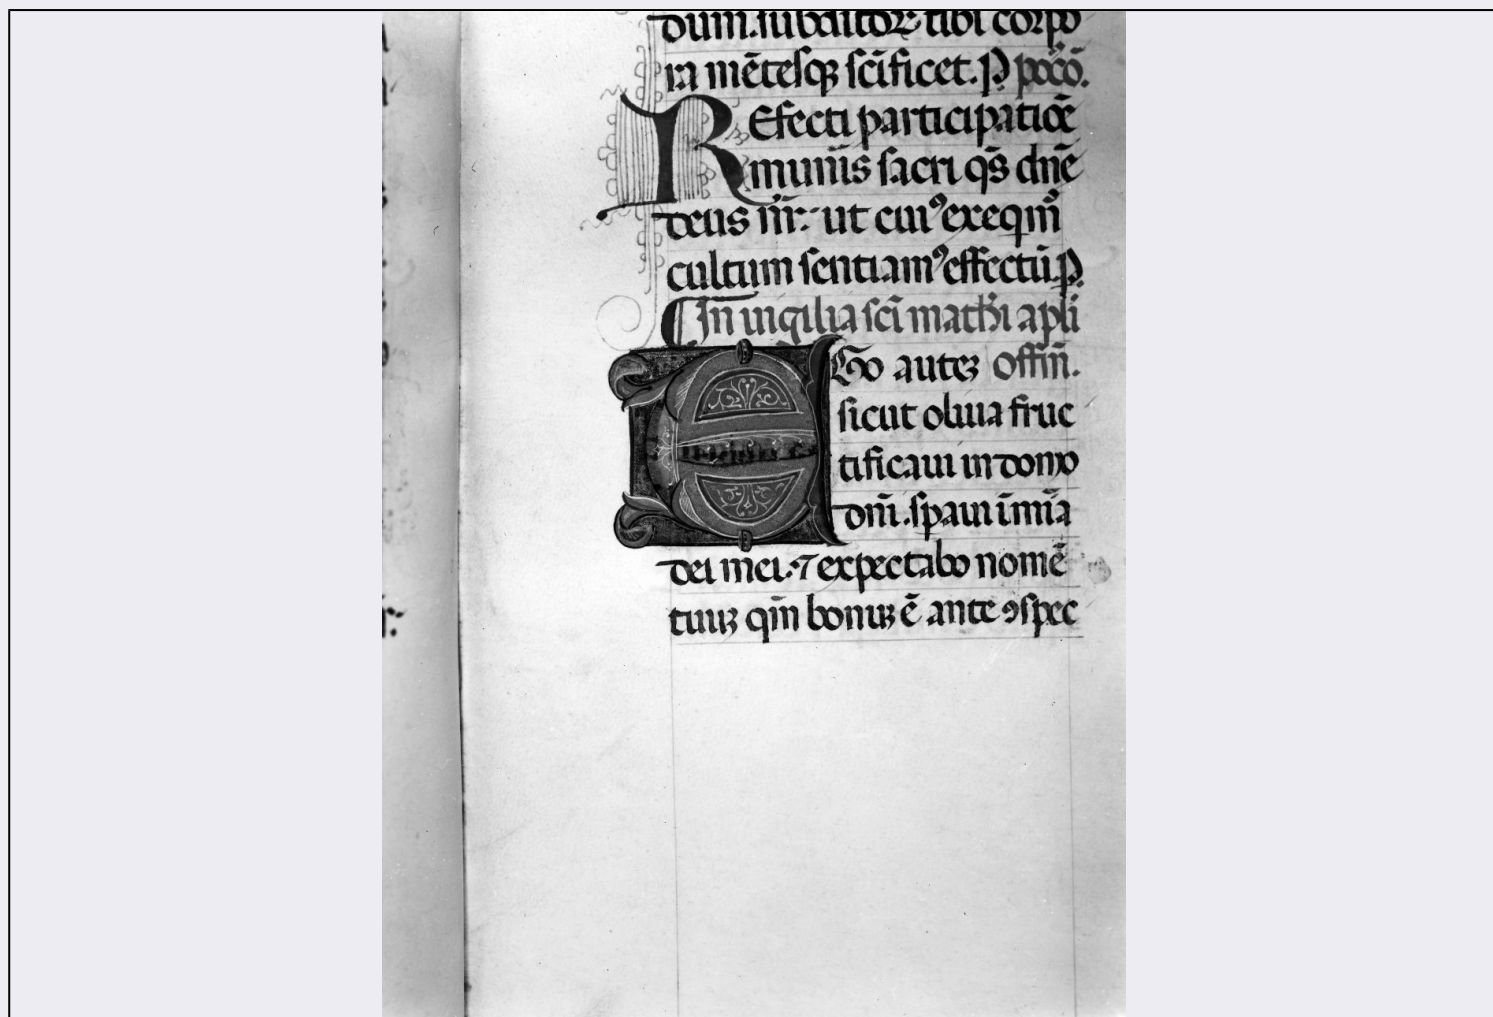 dum. subditoꝝ tibi corpo
ra mẽtesqꝫ scĩficet. P. pocõ.
REfecti participatiõe
muñis sacri q̃s dñe
deus nr̃: ut cuiꝰ exeqm̃
cultum sentiamꝰ effectũ. P.
In uigilia sci mathi apli
EGo autez offm̃.
sicut oliua fruc
tificaui in domo
dom̃. spaui ĩ mia
dei mei. ⁊ expectabo nomẽ
tuuꝫ qm̃ bonuꝫ ẽ ante ꝯspec